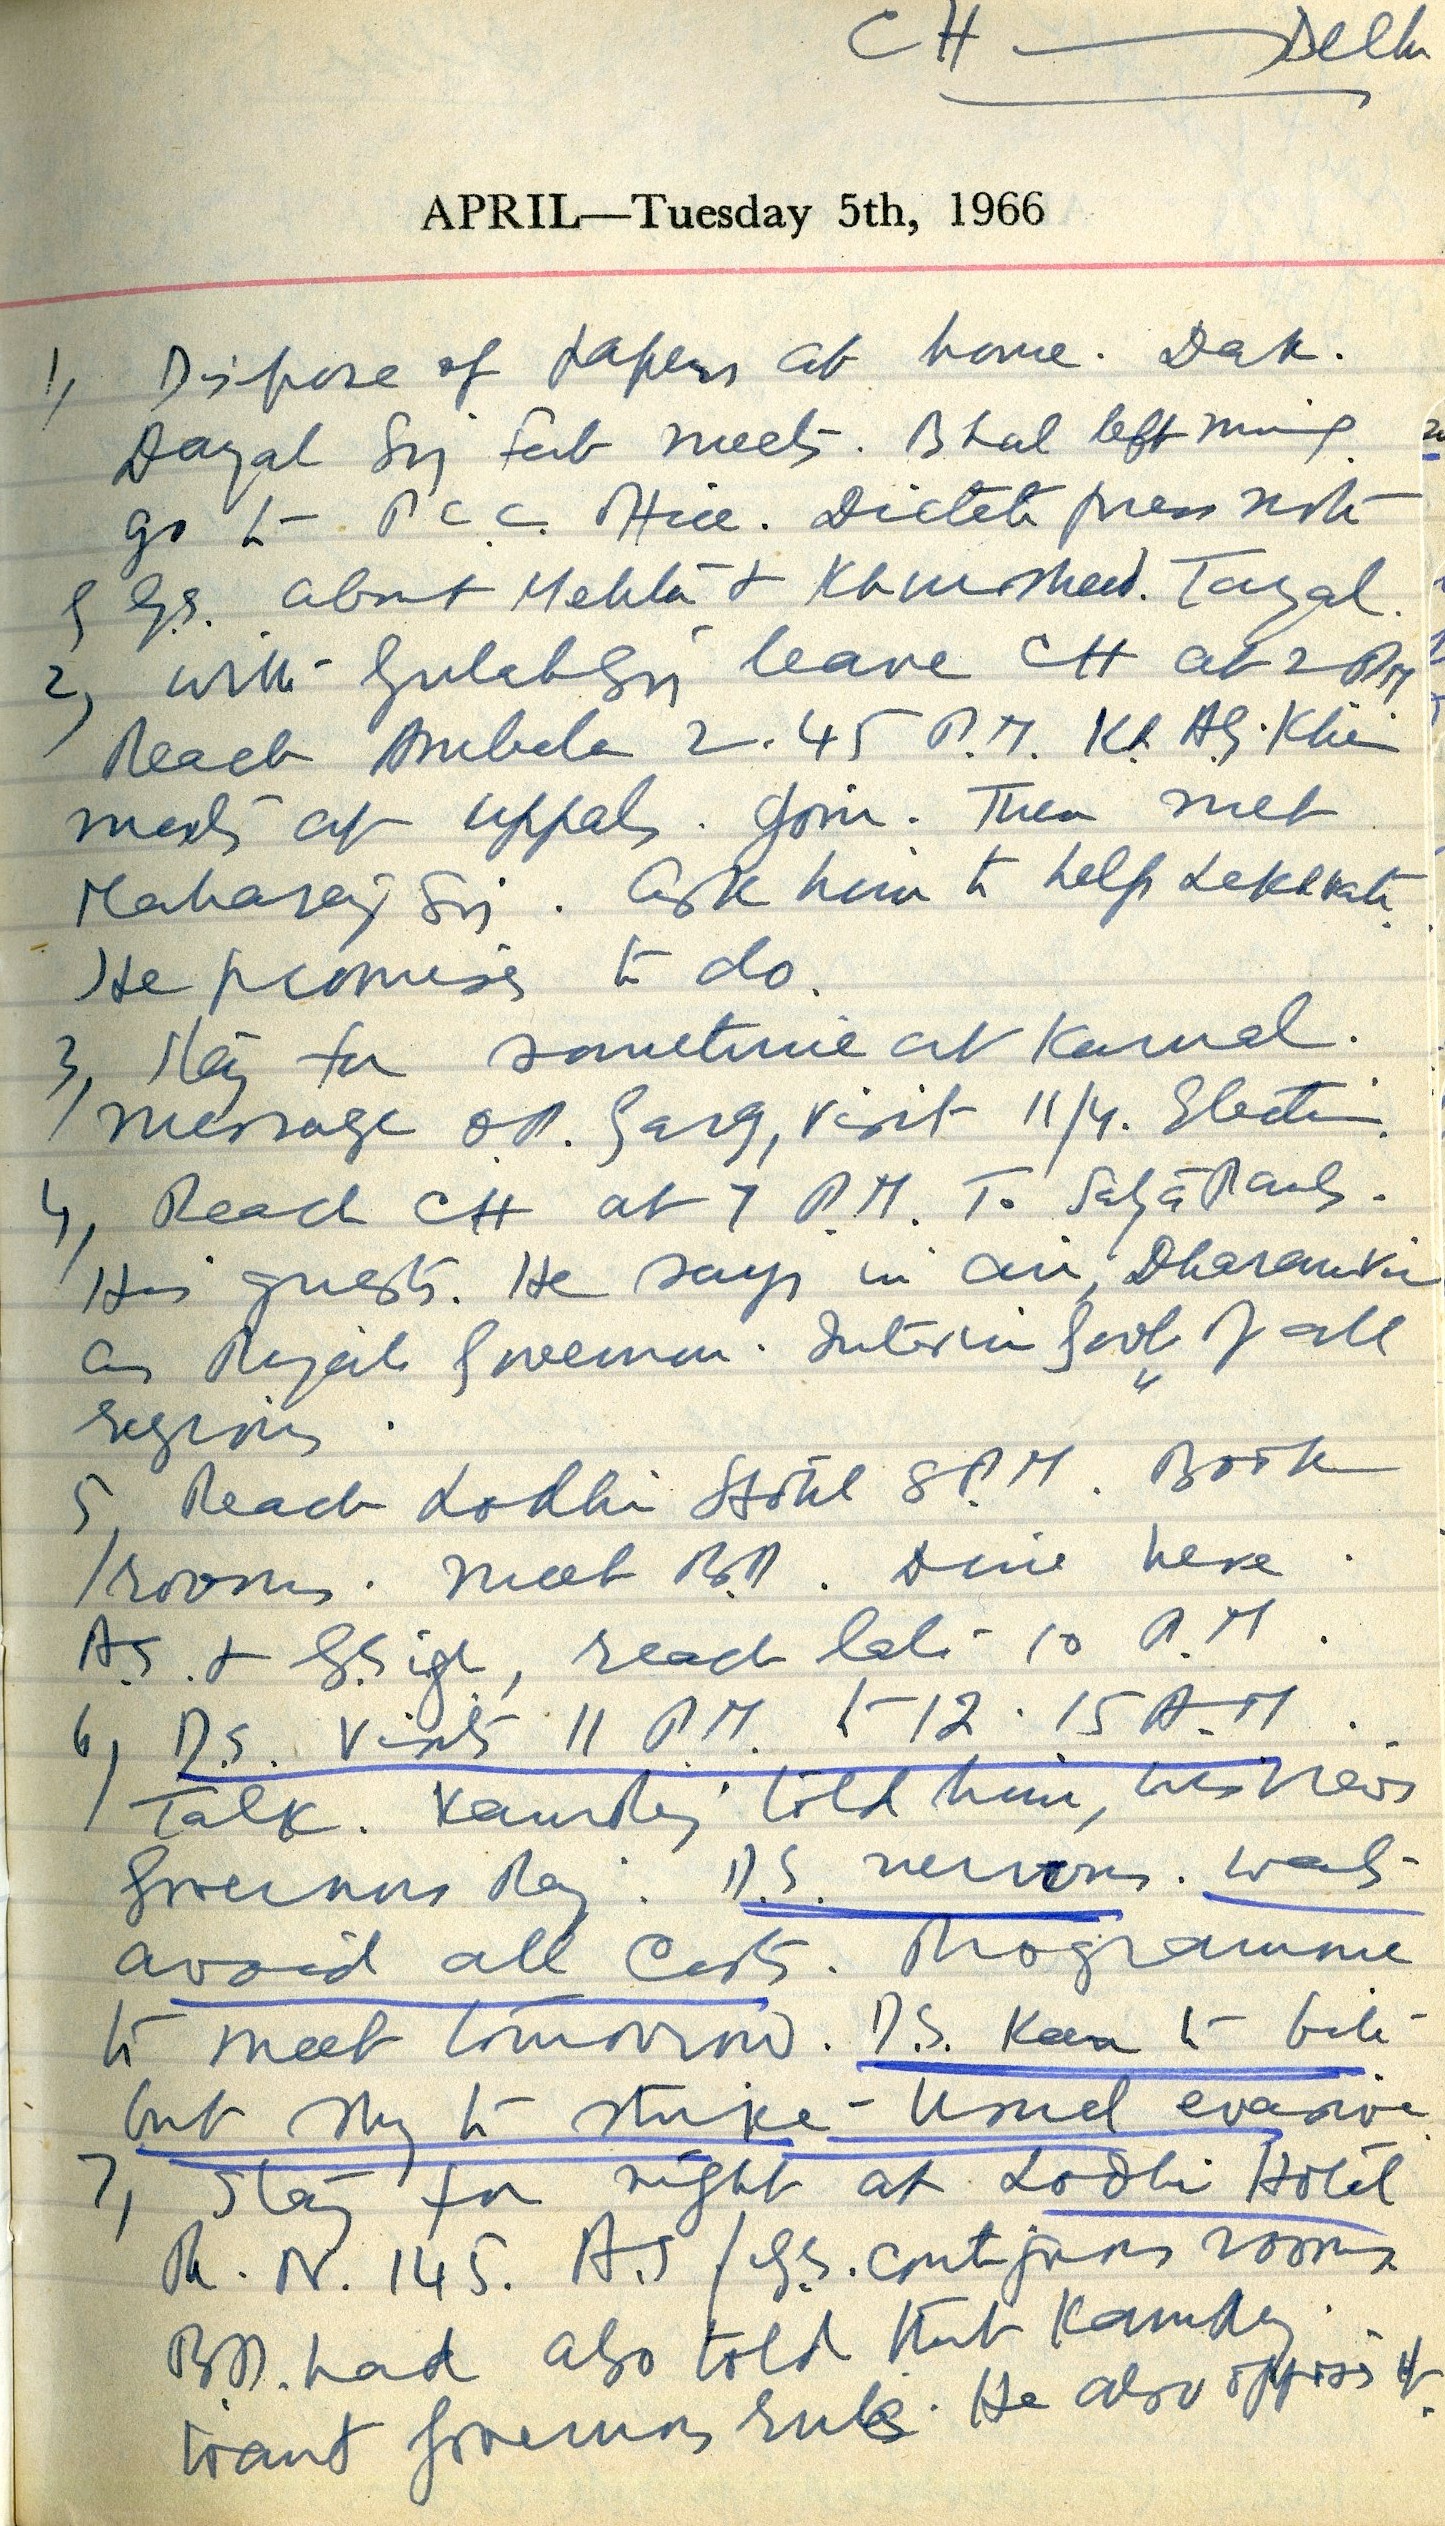 CH — Delhi
APRIL—Tuesday 5th, 1966
1, Dispose of papers at home. Dak.
Dayal Sij meets. Bhal left
go to P.C.C. Office. Dictate press note
G.S. about Mehta & Khurshed. Tayal.
2, With Gulab Sij leave CH at 2 PM
Reach Ambala 2.45 P.M. Kh. A.S.
meets at Uppals. Join. Then met
Maharaj Sij. Ask him to help Lekhvati.
He promises to do.
3, Stay for sometime at Karnal.
message O.P. Garg, visit 11/4. Election.
4, Reach CH at 7 P.M. To Satya Pauls.
His guests. He says in air, Dharamvir
as Punjab Governor. Interim Govt of all
regions.
5, Reach Lodhi Hotel 8 P.M. Book
rooms. Meet B.D. Dine here.
A.S. & G. Sigh, reach late 10 P.M.
6, D.S. visits 11 P.M. to 12.15 A.M.
Talk. Kamraj told him, his views
Governors Raj. D.S. nervous. wants
avoid all costs. Programme
to meet tomorrow. D.S. Keen to bite
but shy to strike - Usual evasive.
7, Stay for night at Lodhi Hotel
R. N. 145. A.S / G.S. contiguous rooms
B.D. had also told that Kamraj
want Governors rule. He also opposes it.